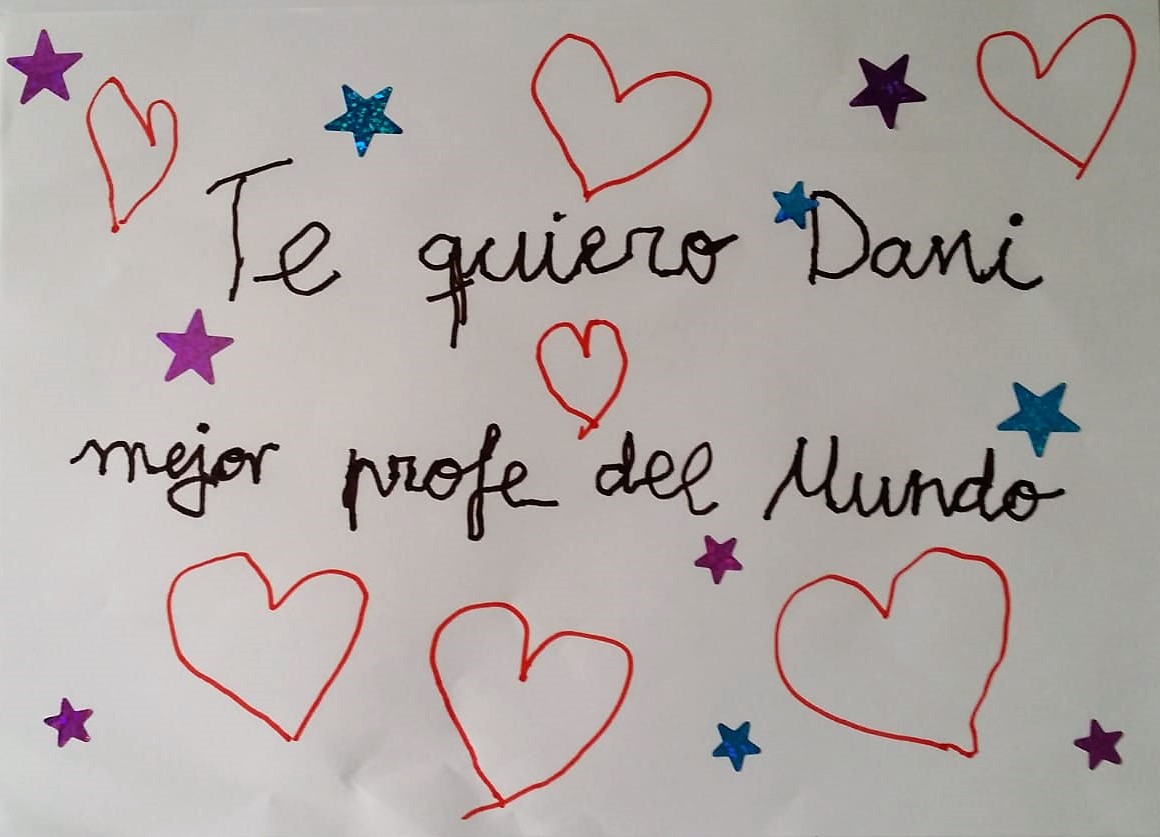 Te quiero Dani
mejor profe del Mundo